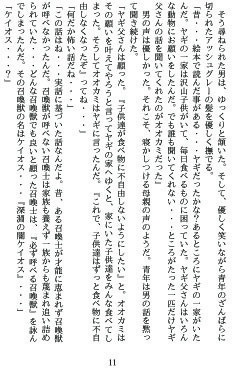 そう尋ねられた男は、ゆっくりと頷いた。そして、優しく笑いながら青年のざんばらに
切られたアッシュ　　の髪を優しく撫でる。
「昔、絵本で読んだ事がある・・・ヤギだったかな？あるところにヤギの一家がいた
んだ。ヤギの一家は沢山子供がいて、毎日食べるものに困っていた。ヤギ父さんはいろん
な動物にお願いをしたんだ。でも誰も聞いてくれない・・・ところがたった一匹だけヤギ
父さんの話を聞いてくれたのがオオカミだった」
男の声は優しかった。それこそ、寝かしつける母親の声のようだ。青年は男の話を黙っ
て聞き続けた。
「ヤギ父さんは願った。『子供達が食べ物に不自由しないようにしたい』と。オオカミは
その願いを叶えてやろうと言ってヤギの家へゆくと、家にいた子供達をみんな食べてし
まったんだ。そうしてオオカミはヤギに言ったんだ。『これで、子供達はずっと食べ物に不自
由しないな』・・・って」
「何だか怖い話だね・・・」
「この話はね・・・実話に基づいた話なんだよ。昔、ある召喚士が才能に恵まれず召喚獣
が呼べなかったんだ。召喚獣が呼べない召喚士は家族も養えず一族からも蔑まれ追い詰め
られていた・・・どんな召喚獣でも良いと願った召喚士は、『必ず呼べる召喚獣』を詠み
でしまったんだ。その召喚獣の名はケイオス・・・『深淵の闇ケイオス』・・・」
「ケイオス・・・？」
11